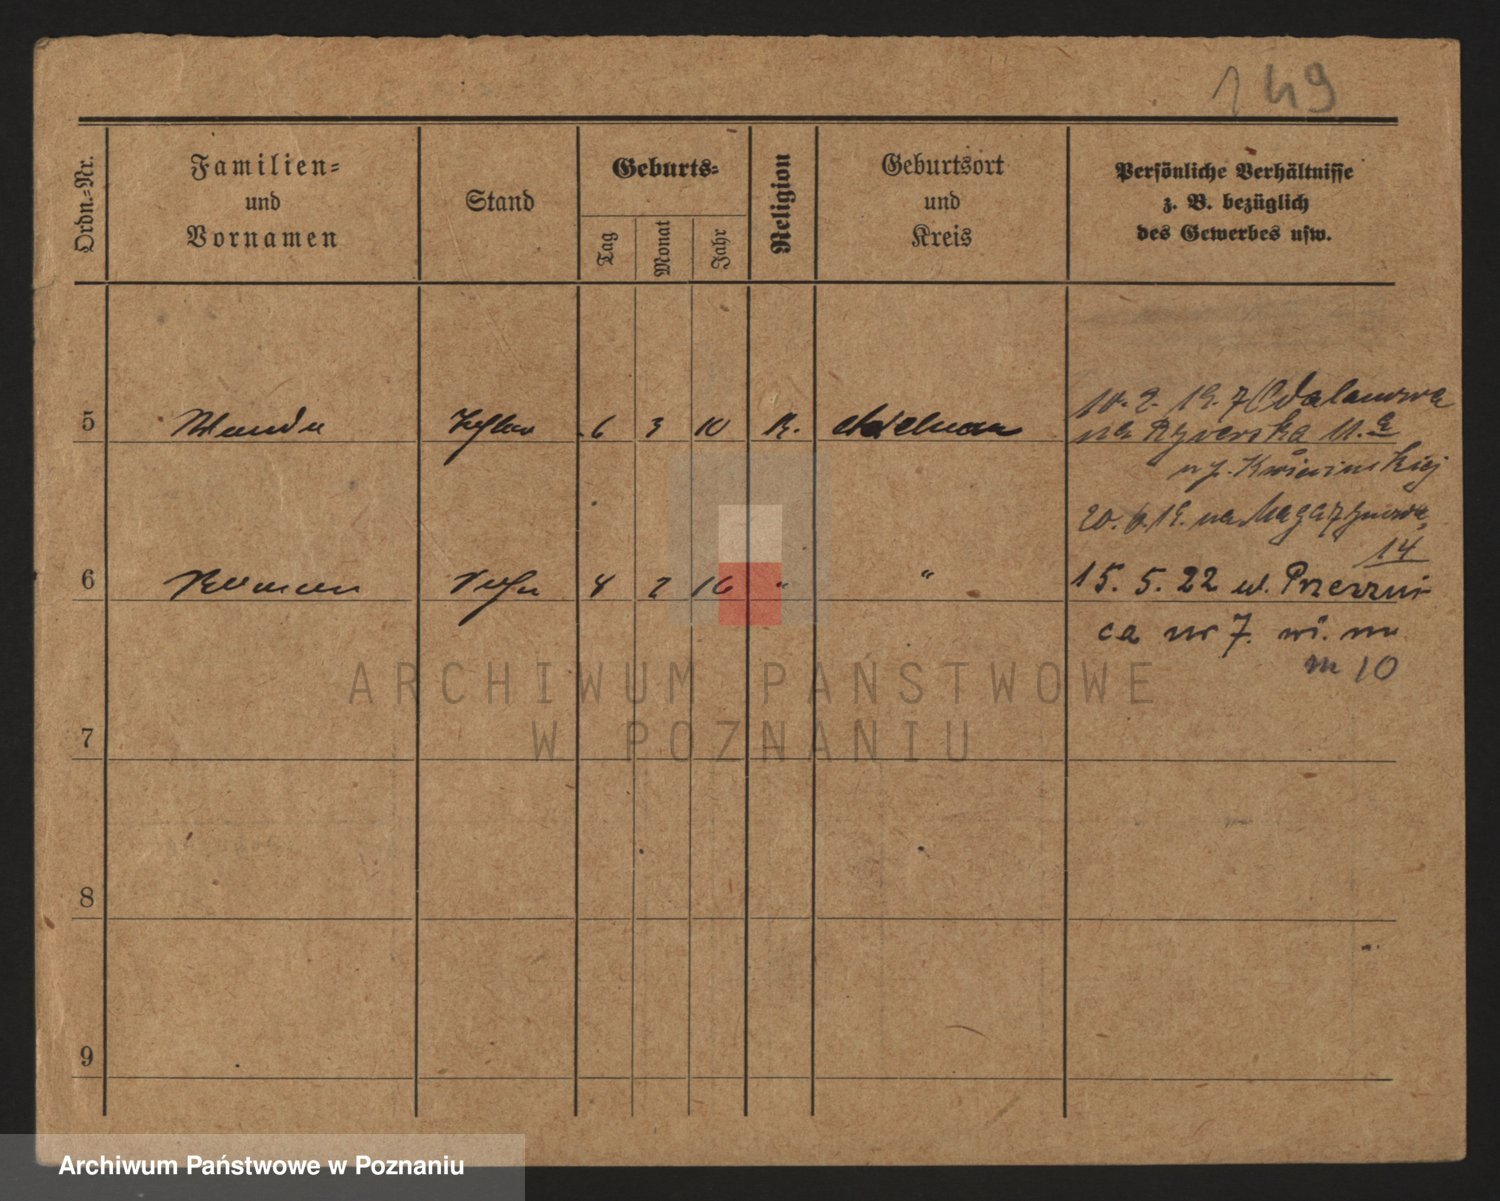 149
Ordn.=Nr.
Familien=
und
Vornamen
Stand
Geburts=
Tag
Monat
Jahr
Religion
Geburtsort
und
Kreis
Persönliche Verhältnisse
z. B. bezüglich
des Gewerbes usw.
5 Wanda Tochter 6 3 10 K.
10. 2. 19. z Odalanowa
na
20. 6. 19. na Magazynowa
14
6 Roman Sohn 8 2 16 " "
15. 5. 22 ul. Przezni-
ca nr 7. wi. m
m 10
7
8
9
ARCHIWUM PAŃSTWOWE
W POZNANIU
Archiwum Państwowe w Poznaniu